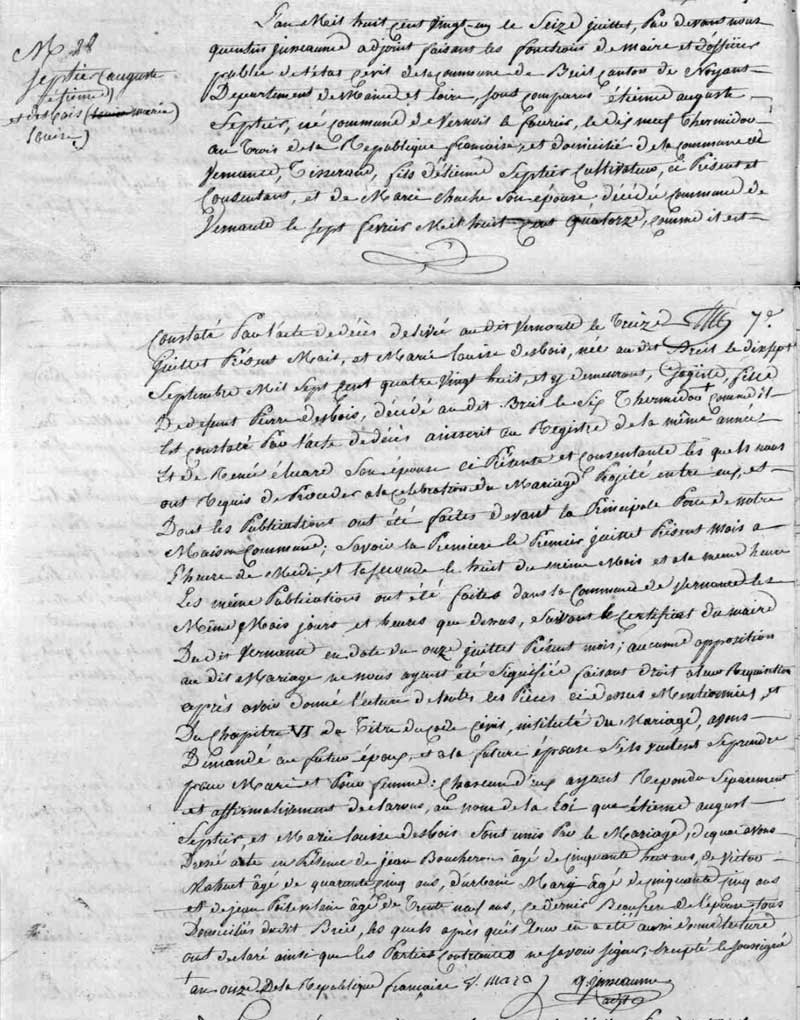 M 28
Septier (auguste
etienne)
et desbois (louise marie)
Louise)
L'an Mil huit cent vingt-un le Seize juillet, Par devant nous
quentin juneaume adjoint faisant les fonctions de maire et d'officier
public de l'état civil de la commune de Breil canton de Noyant
Département de Maine et Loire, sont comparus étienne auguste
Septier, né commune de Vernoil le fourier, le dix neuf Thermidor
au Trois de la République francaise, et domicilié de la commune de
Vernante, Tisserand, fils d'étienne Septier Cultivateur, ci Présent et
Consentant, et de Marie chache Son épouse décédée commune de
Vernante le sept fevrier Mil huit cent quatorze, comme il est
Constaté Par l'acte de décès délivré au dit Vernante le Treize 7e.
juillet Présent Mois, et Marie Louise desbois, née au dit Breil le dix sept
Septembre Mil Sept cent quatre vingt huit, et y demeurant, Gagiste, fille
De defunt Pierre desbois, décédé au dit Breil le Six Thermidor + comme il
Est constaté Par l'acte de décès ainscrit au Registre de la même année
Et de Renée éluard Son épouse ci Présente et consentante les quels nous
ont Requis de Proceder a la Celebration du Mariage Projeté entre eux, et
Dont les Publications ont été faites devant la Principale Porte de notre
Maison Commune; Savoir la Premiere le Premier juillet Présent mois a
l'heure de Midi, et la seconde le huit du même Mois et a la même heure
Les même Publications ont été faites dans la Commune de Vernante les
Même Mois jours et heures que dessus, Suivant le Certificat du maire
Du dit Vernante en date du onze juillet Présent mois; aucune opposition
au dit Mariage ne nous ayant été Signifiée faisant droit a leur Requisition
après avoir donné lecture de toutes les Pièces ci dessus Mentionnées, et
Du Chapitre VI du Titre du code Civil, intitulé du Mariage, avons
Demandé au futur époux, et a la future épouse S'ils veulent Se prendre
pour Mari et Pour femme: Chacun d'eux ayant Repondu Separement
et affirmativement declarons, au nom de la Loi que étienne august
Septier, et Marie Louise desbois Sont unis Par le Mariage, de quoi avons
Dressé acte en Présence de jean Boucheron agé de cinquante huit ans, de Victor
Mahuet âgé de quarante cinq ans, d'urbain Mary âgé de cinquante cinq ans
et de jean agé de Trente neuf ans, ce dernier Beaufrere de l'épouse tous
Domiciliés du dit Breil, les quels après qu'il leur en a été aussi donné lecture
ont declaré ainsi que les Parties Contractantes ne savoir signer, excepté le soussigné
+ an onze De la République française V. Mara q. juneaume
adjt